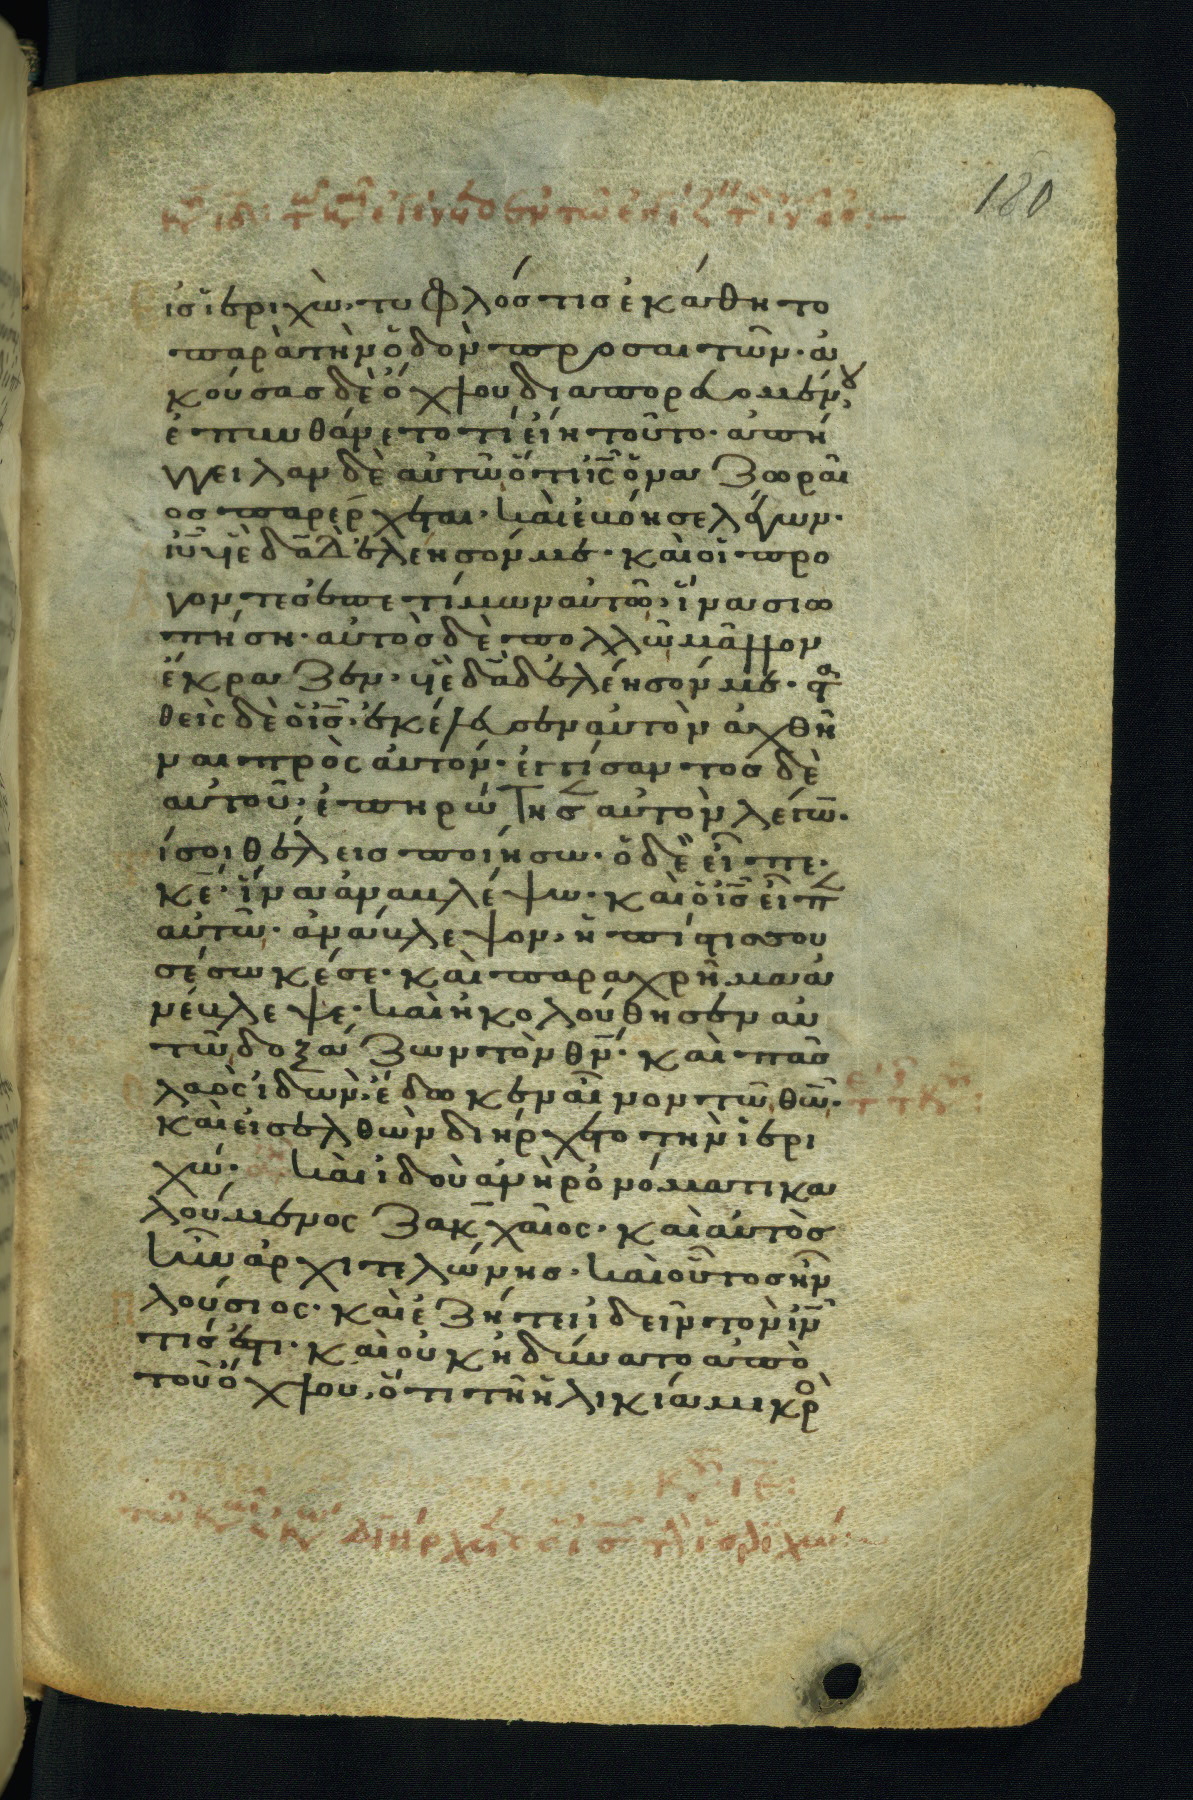 180
ισ ἰεριχὼ· τυφλόσ τισ ἐκάθητο
παρὰ τὴν ὁδὸν προσαιτῶν· ἀ
κούσασ δὲ ὄχλου διαπορευομένου,
ἐπυνθάνετο τί εἴη τοῦτο· ἀπή
γγειλαν δὲ αὐτῶ ὅτι ἰς̅ ὁ ναζωραῖ
οσ παρέρχεται· καὶ ἐβόησε λέγων·
ἰῡ ὑὲ δᾱδ ἐλέησόν με· καὶ οἱ προ
γοντεσ ἐπετίμων αὐτῶ, ἵνα σιω
πήση· αὐτὸσ δὲ πολλῶ μᾶλλον
ἔκραζεν· ὑὲ δᾱδ ἐλέησόν με· στα
θεὶς δὲ ὁ ἰσ̅· ἐκέλευσεν αὐτὸν ἀχθῆ
ναι πρὸς αὐτόν· ἐγγίσαντοσ δὲ
αὐτοῦ, ἐπηρώτησ αὐτὸν λέγων·
ί σοι θέλεισ ποιήσω· ὁ δὲ εἶπε·
κε̅· ἵνα ἀναβλέψω· καὶ ὁ ἰσ̅ εἶπ
αὐτῶ· ἀνάβλεψον, ἡ πίστισ σου
σέσωκέ σε· καὶ παραχρῆμα ἀ
νέβλεψε· καὶ ἠκολούθησεν αὐ
τῶ δοξάζων τὸν θν̅· καὶ πᾶσ
λαὸς ἰδὼν, ἔδωκεν αἶνον τῶ θω̅·
καὶ εἰσελθὼν διήρχετο τὴν ἰερι
χώ· καὶ ἰδοὺ ἀνὴρ ὀνόματι κα
λούμενος ζακχαῖος· καὶ αὐτὸσ
ἦν ἀρχιτελώνησ· καὶ οὗτοσ ἦν
λούσιος· καὶ ἐζήτει ἰδεῖν τὸν ἰν̅
τίσ ἐστι· καὶ οὐκ ἠδύνατο ἀπὸ
τοῦ ὄχλου, ὅτι τῆ ἡλικία μικρὸ